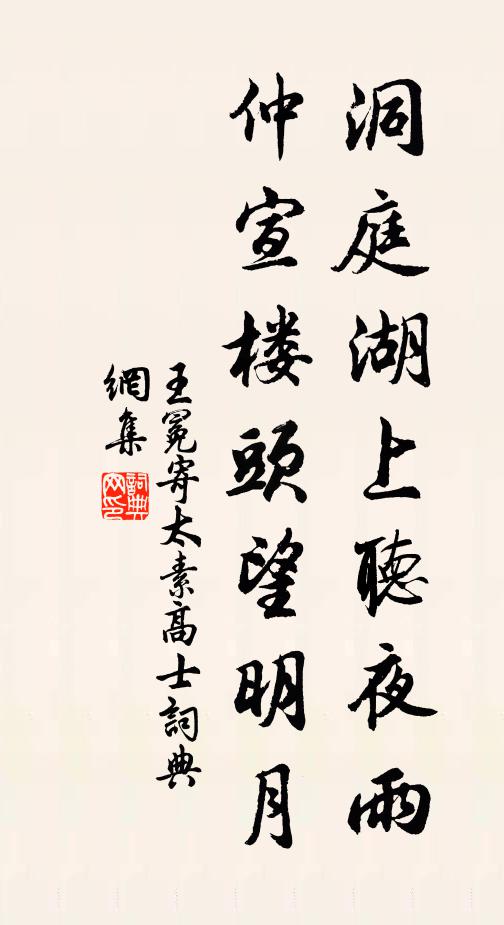 洞庭湖上聽夜雨
仲宣楼頭望明月
王冕寄太素高士詞典
網集
詞典
网印